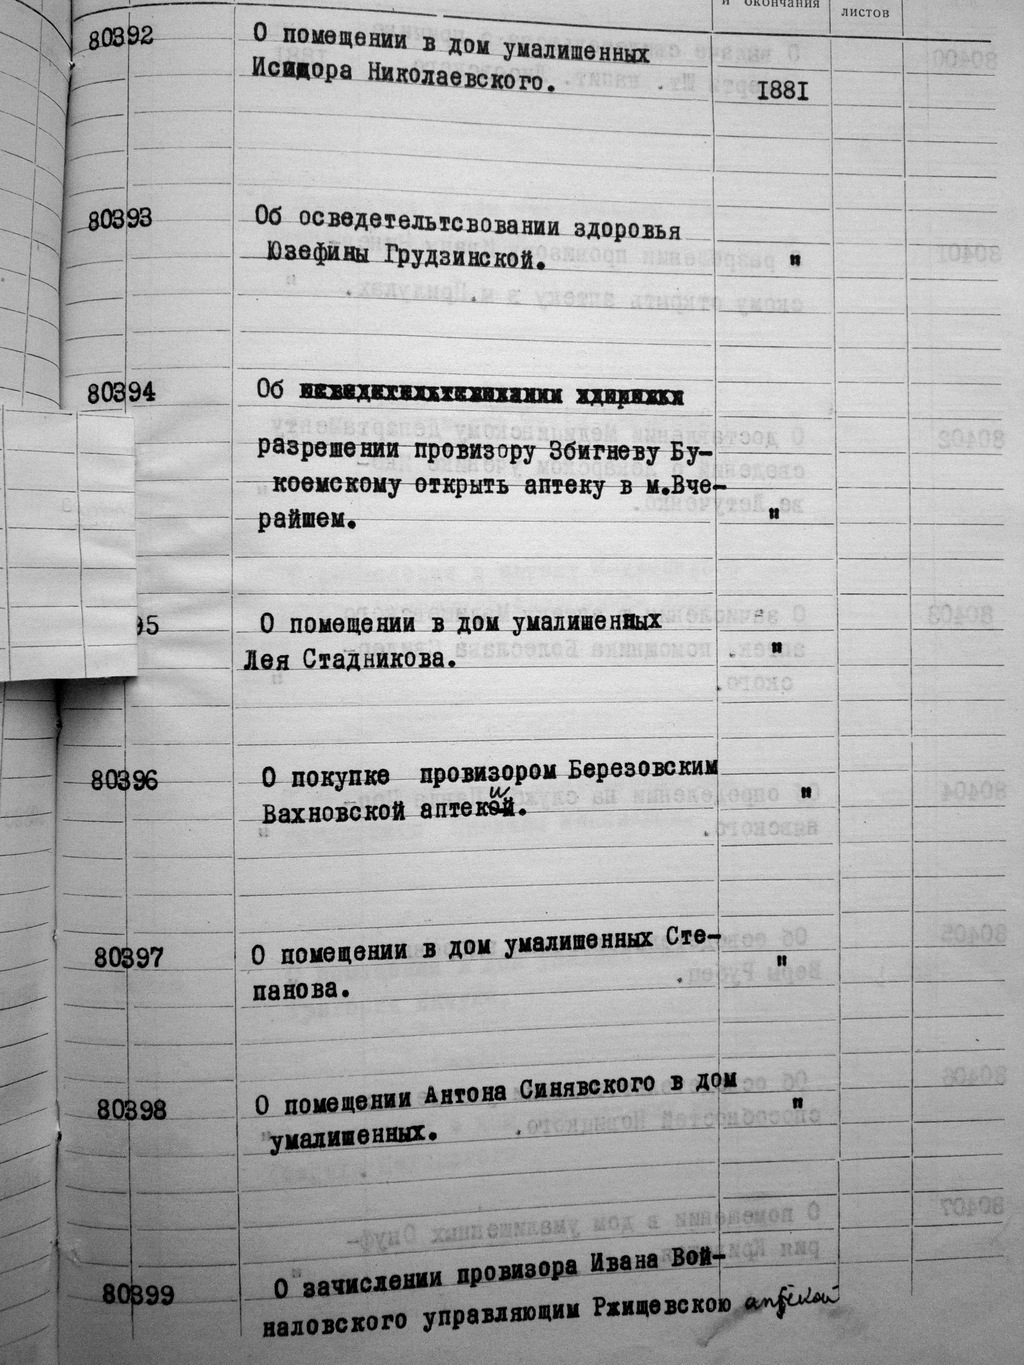 и окончания
листов
80392 О помещении в дом умалишенных
Исидора Николаевского. 1881
80393 Об осведетельтсвовании здоровья
Юзефины Грудзинской. "
80394 Об
разрешении провизору Збигневу Бу-
коемскому открыть аптеку в м.Вче-
райшем. "
95 О помещении в дом умалишенных
Лея Стадникова. "
80396 О покупке провизором Березовским
Вахновской аптеки. "
80397 О помещении в дом умалишенных Сте-
панова. "
80398 О помещении Антона Синявского в дом
умалишенных. "
80399 О зачислении провизора Ивана Вой-
наловского управляющим Ржищевскою аптекой